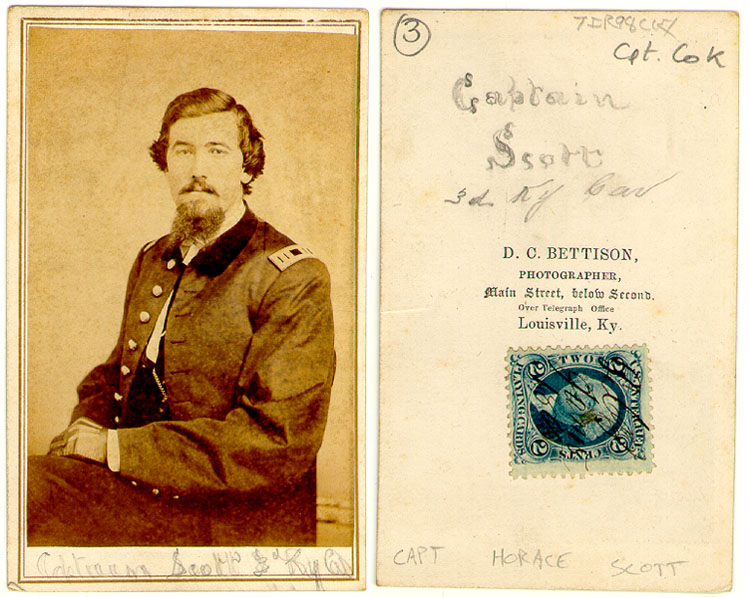 Captain Scott 3d Ky Cav
3
Cpt. Cok
Captain
Scott
3d Ky Cav
D. C. BETTISON,
PHOTOGRAPHER,
Main Street, below Second.
Over Telegraph Office
Louisville, Ky.
U.S. INTER. REV.
TWO
CENTS
PLAYING CARDS
2
2
2
2
CAPT HORACE SCOTT